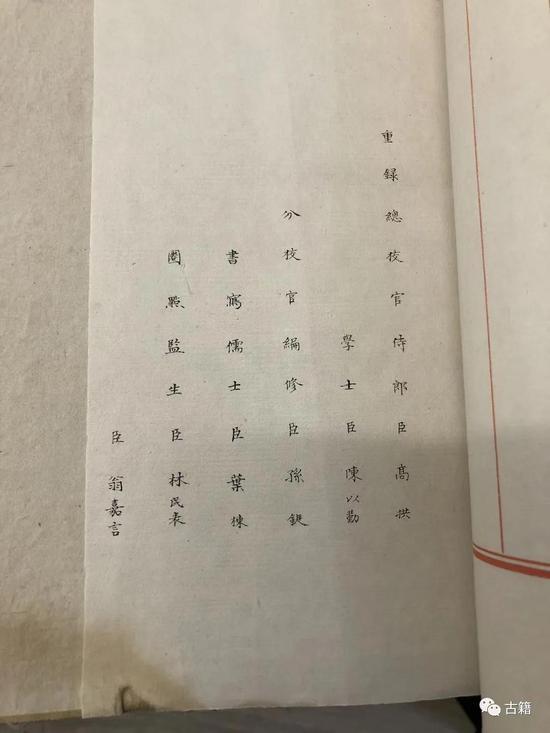 重録緫校官侍郎臣髙拱
學士臣陳以勤
分校官編修臣孫鋌
書寫儒士臣葉棟
圈㸃監生臣林民表
臣翁嘉言
古籍